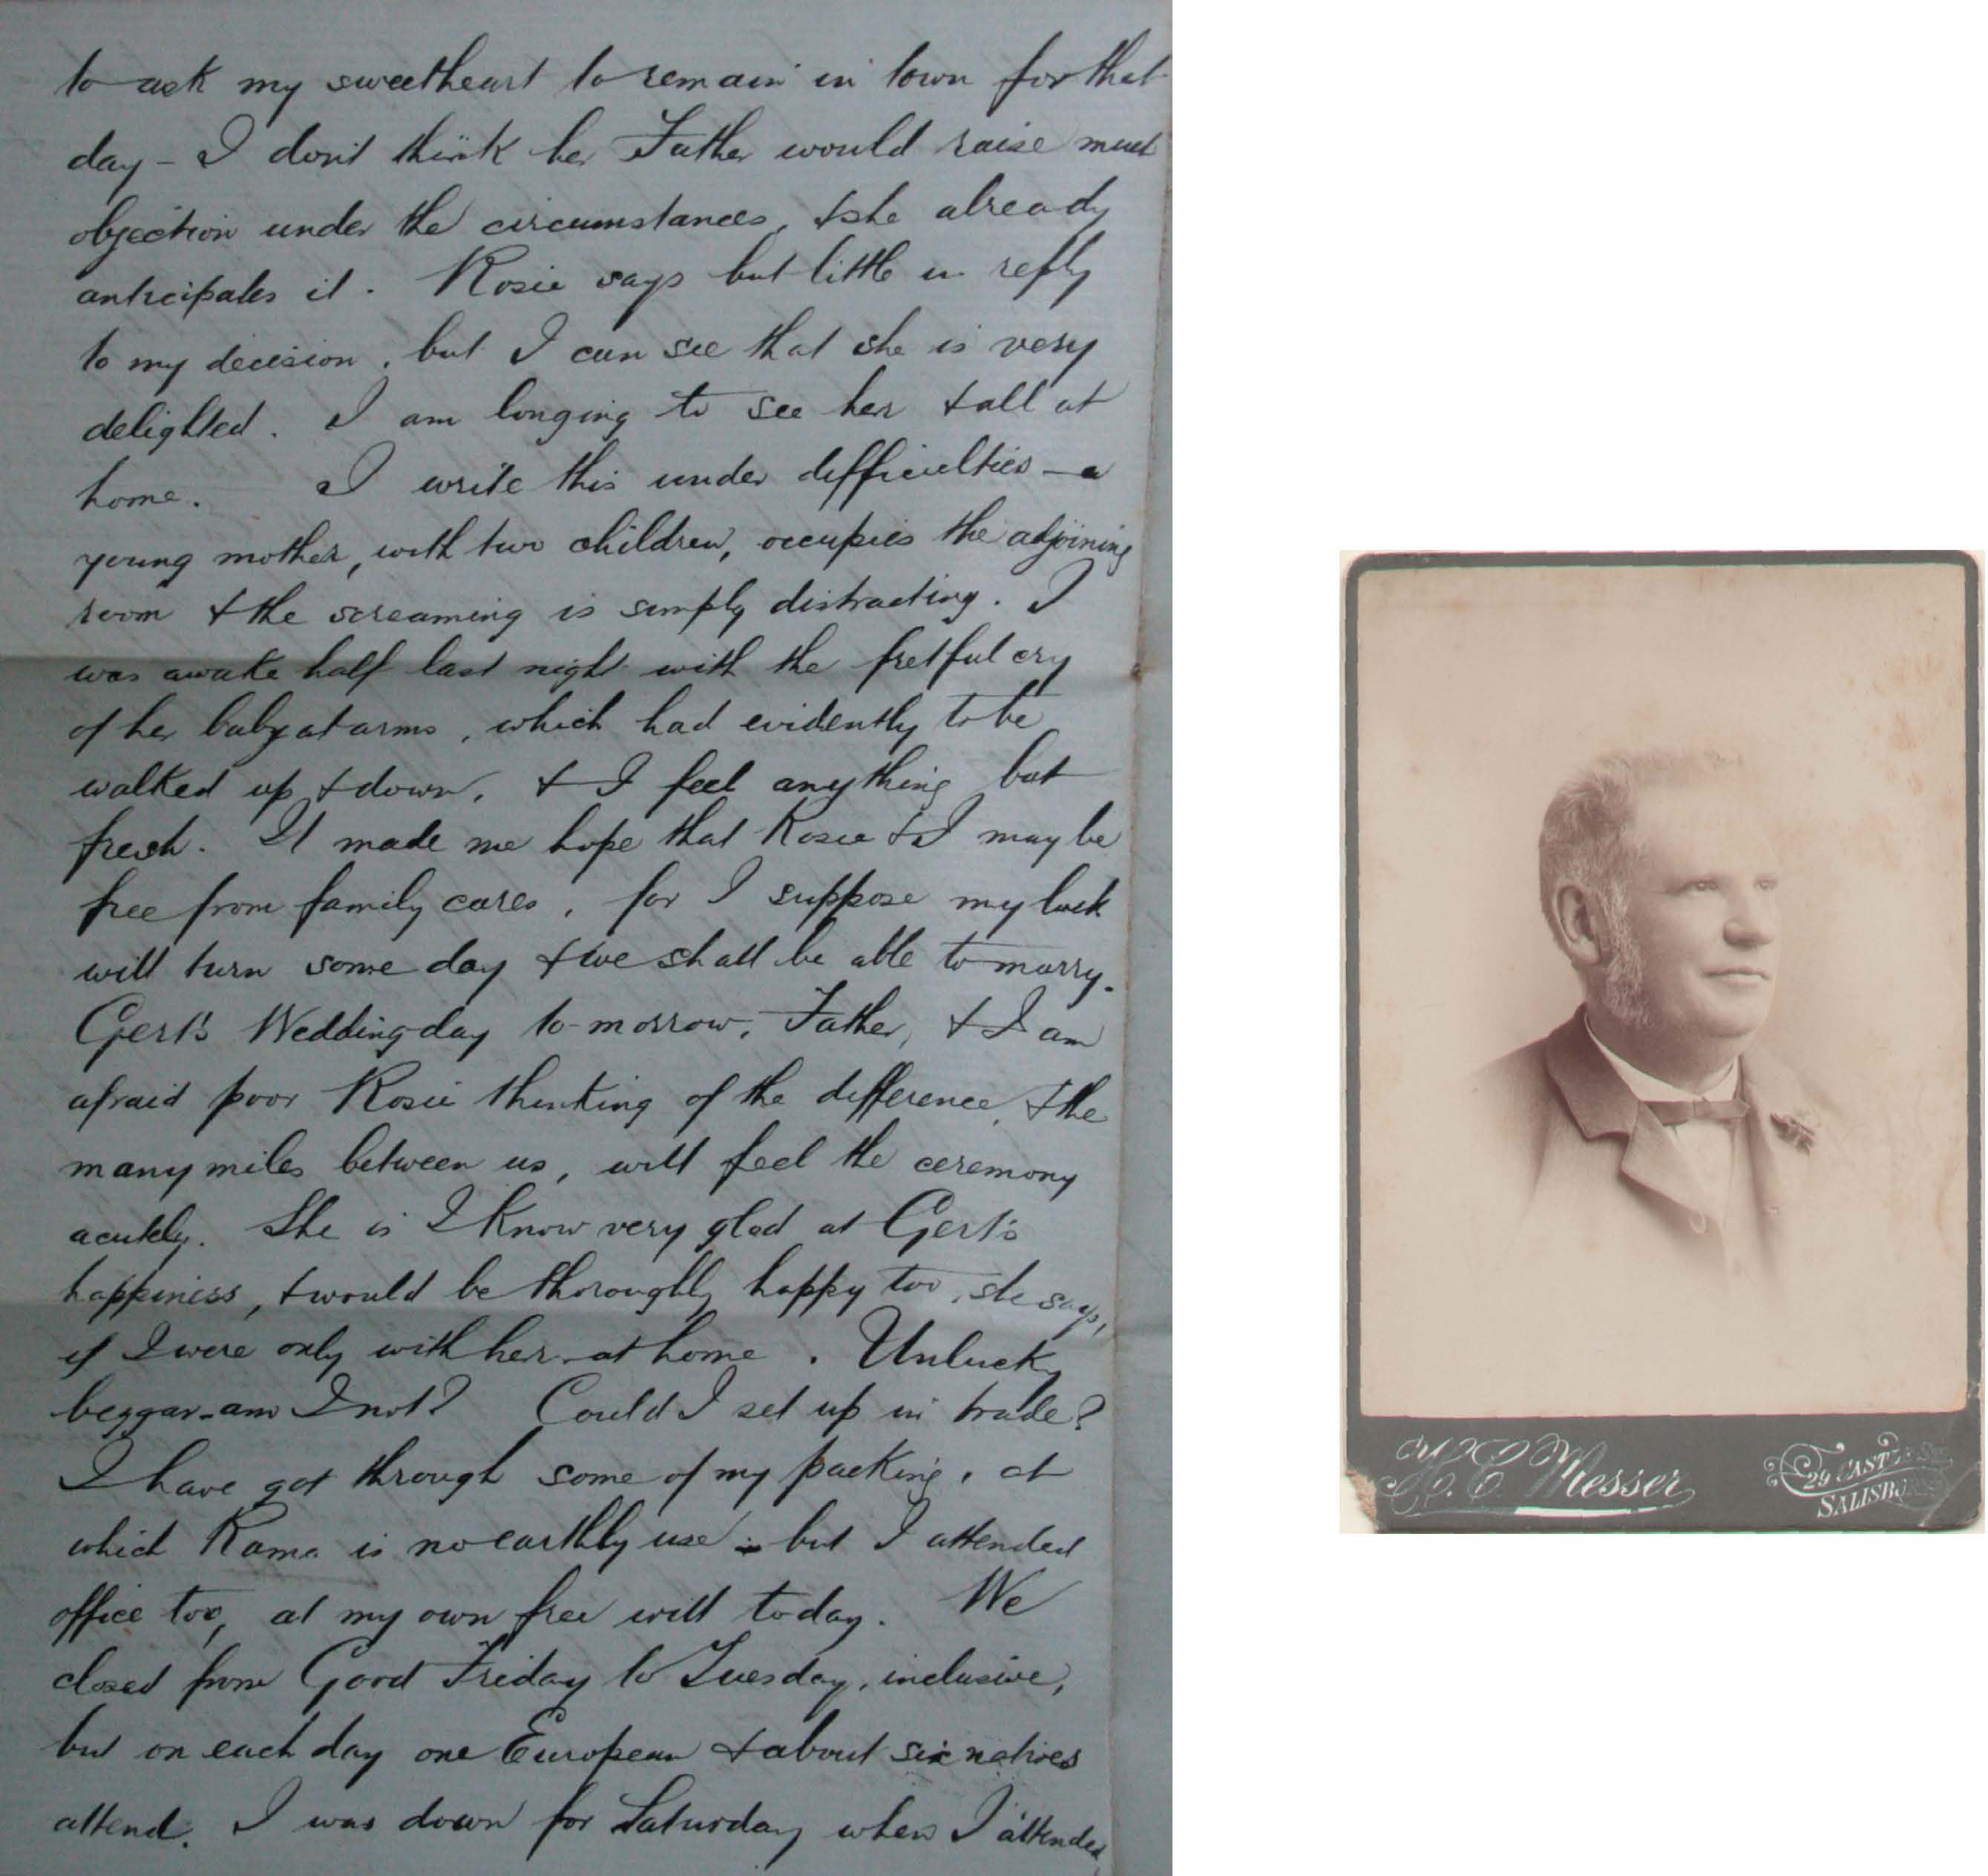 to ask my sweetheart to remain in town for that
day - I don't think her Father would raise much
objection under the circumstances, & she already
anticipates it. Rosie says but little in reply
to my decision, but I can see that she is very
delighted. I am longing to see her & all at
home. I write this under difficulties - a
young mother, with two children, occupies the adjoining
room & the screaming is simply distracting. I
was awake half last night with the fretful cry
of her baby at arms, which had evidently to be
walked up & down, & I feel anything but
fresh. It made me hope that Rosie & I may be
free from family cares, for I suppose my luck
will turn some day & we shall be able to marry.
Gert's Wedding-day to-morrow, Father, & I am
afraid poor Rosie thinking of the difference, & the
many miles between us, will feel the ceremony
acutely. She is I know very glad at Gert's
happiness, & would be thoroughly happy too, she says,
if I were only with her at home. Unlucky
beggar - am I not? Could I set up in trade?
I have got through some of my packing, at
which Rama is no earthly use - but I attended
office too, at my own free will today. We
closed from Good Friday to Tuesday, inclusive,
but on each day one European & about six natives
attend. I was down for Saturday when I attended
H. E. Messer
29 CASTLE ST.
SALISBURY